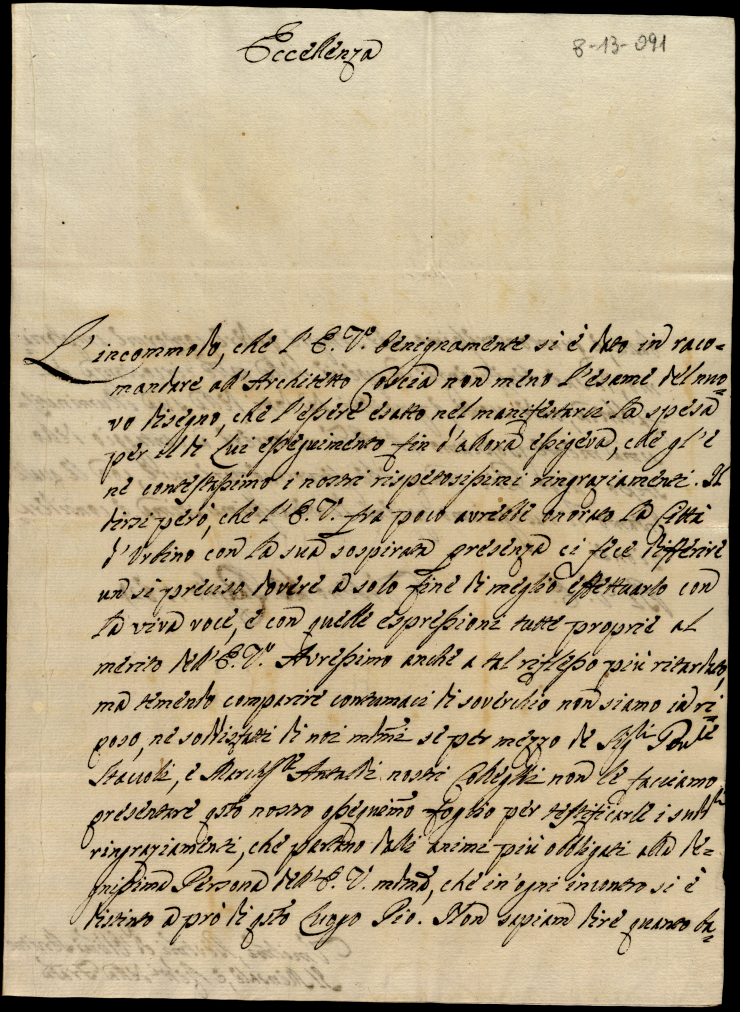 Eccellenza
8-13-091
L'incommodo, che l'E. V.ª benignamente si è dato in raco-
mandare all'Architetto Coscia non meno l'esame del nuo-
vo disegno, che l'essere esatto nel manifestarci la spesa
per il di lui esseguimento fin d'allora essigeva, che gl'è
ne contestassimo i nostri rispetosissimi ringraziamenti. Il
dirsi però, che l'E. V. frà poco avrebbe onorato la Città
d'Urbino con la sua sospirata presenza ci fece differire
un si preciso dovere a solo fine di meglio effettuarlo con
la viva voce, e con quelle espressioni tutte proprie al
merito dell'E. V.ª Avressimo anche a tal riflesso più ritardato,
ma temendo comparire contumaci di soverchio non siamo in ri-
poso, ne sodisfatti di noi mdmi se per mezzo de Sig.li
Staccoli, e March.se Antaldi nostri Colleghi non le facciamo
presentare qsto nostro ossequemo foglio per testificarle i sudd.i
ringraziamenti, che partano dalli animi più obbligati alla de-
gnissima Persona dell'E. V. mdma, che in'ogni incontro si è
distinto a prò di qsto Luogo Pio. Non sapiam dire quanto ba-